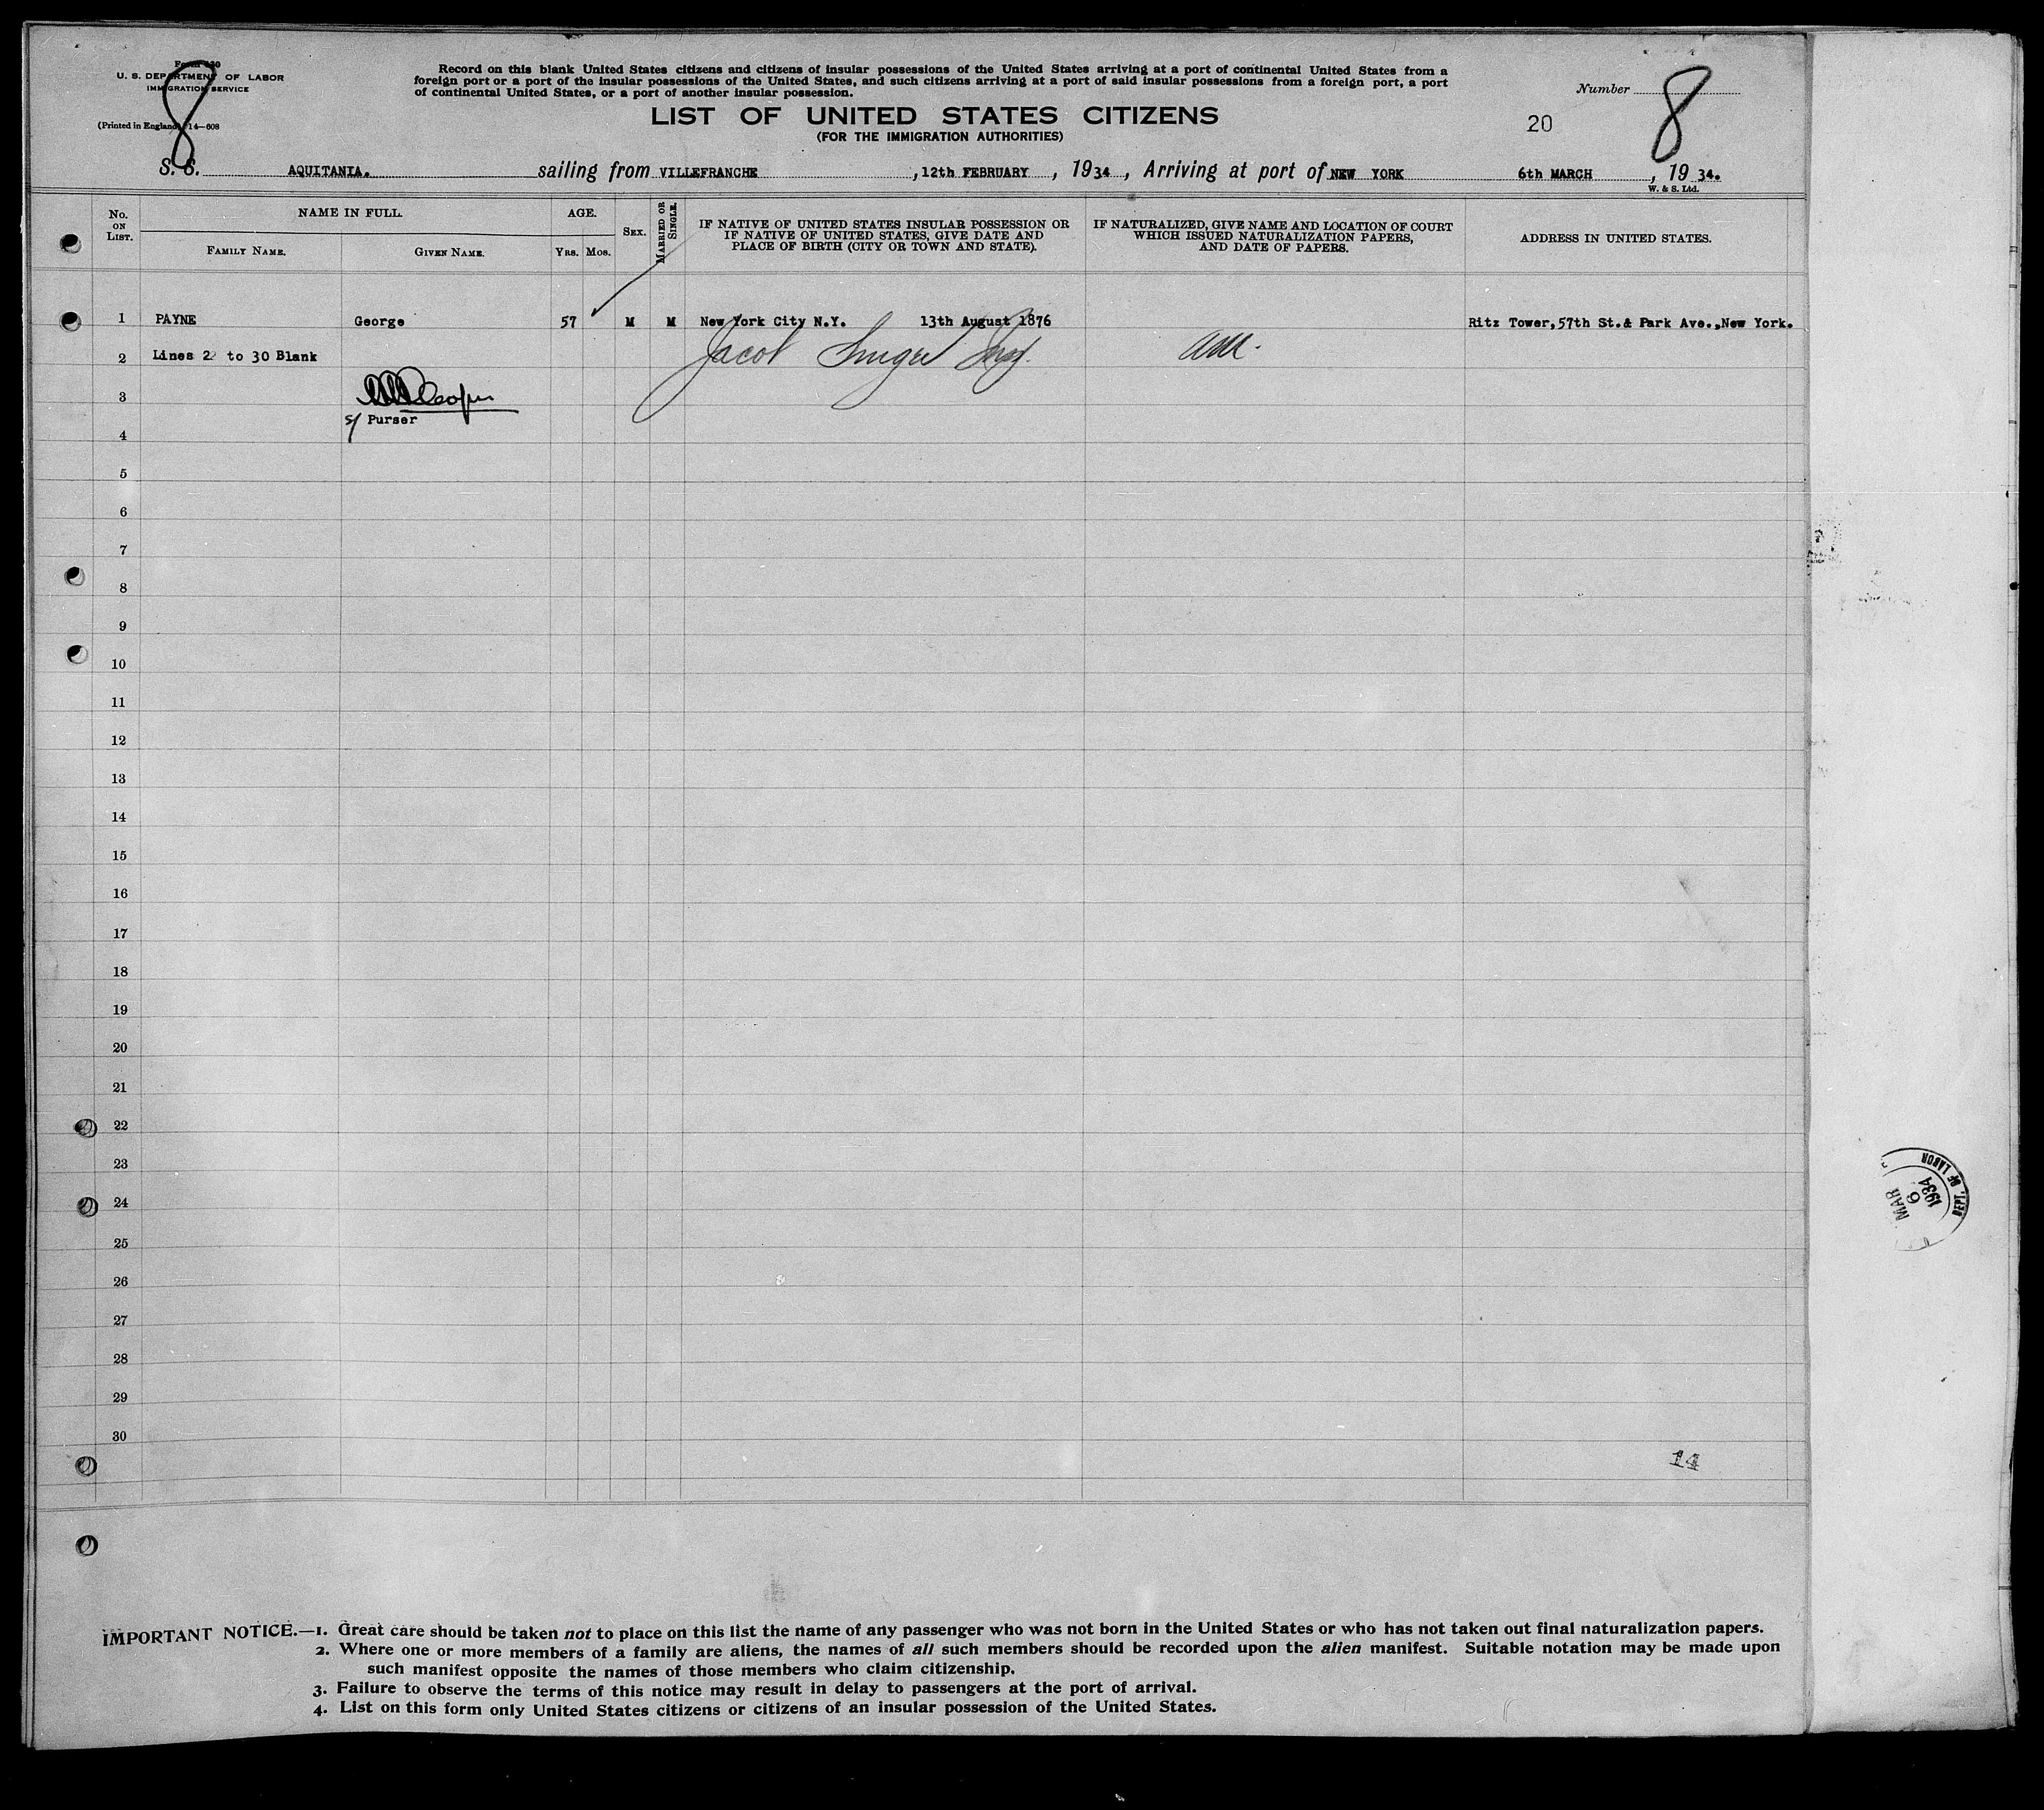 Form 630
U. S. DEPARTMENT OF LABOR
IMMIGRATION SERVICE
(Printed in England) 14—608
8
Record on this blank United States citizens and citizens of insular possessions of the United States arriving at a port of continental United States from a
foreign port or a port of the insular possessions of the United States, and such citizens arriving at a port of said insular possessions from a foreign port, a port
of continental United States, or a port of another insular possession.
LIST OF UNITED STATES CITIZENS
(FOR THE IMMIGRATION AUTHORITIES)
Number 8
20
S. S. AQUITANIA. sailing from VILLEFRANCHE , 12th FEBRUARY , 1934 , Arriving at port of NEW YORK 6th MARCH , 19 34.
W. & S. Ltd.
No. ON LIST.
NAME IN FULL.
FAMILY NAME.
GIVEN NAME.
AGE.
YRS. MOS.
SEX.
MARRIED OR SINGLE.
IF NATIVE OF UNITED STATES INSULAR POSSESSION OR
IF NATIVE OF UNITED STATES, GIVE DATE AND
PLACE OF BIRTH (CITY OR TOWN AND STATE).
IF NATURALIZED, GIVE NAME AND LOCATION OF COURT
WHICH ISSUED NATURALIZATION PAPERS,
AND DATE OF PAPERS.
ADDRESS IN UNITED STATES.
1 PAYNE George 57 M M New York City N.Y. 13th August 1876 Ritz Tower,57th St.& Park Ave.,New York.
2 Lines 2 to 30 Blank Jacob
3
S/ Purser
4
5
6
7
8
9
10
11
12
13
14
15
16
17
18
19
20
21
22
23
24
25
26
27
28
29
30
14
DEPT. OF LABOR
MAR
6
1934
IMPORTANT NOTICE.—1. Great care should be taken not to place on this list the name of any passenger who was not born in the United States or who has not taken out final naturalization papers.
2. Where one or more members of a family are aliens, the names of all such members should be recorded upon the alien manifest. Suitable notation may be made upon
such manifest opposite the names of those members who claim citizenship.
3. Failure to observe the terms of this notice may result in delay to passengers at the port of arrival.
4. List on this form only United States citizens or citizens of an insular possession of the United States.